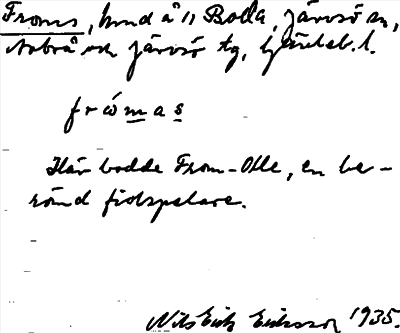 Froms, hmd å 11 Bolla, Järvsö sn,
Arbrå och Järvsö tg, Gävleb. l.
frómas
Här bodde From-Olle, en be-
römd fiolspelare.
Nils Erik Eriksson 1935.